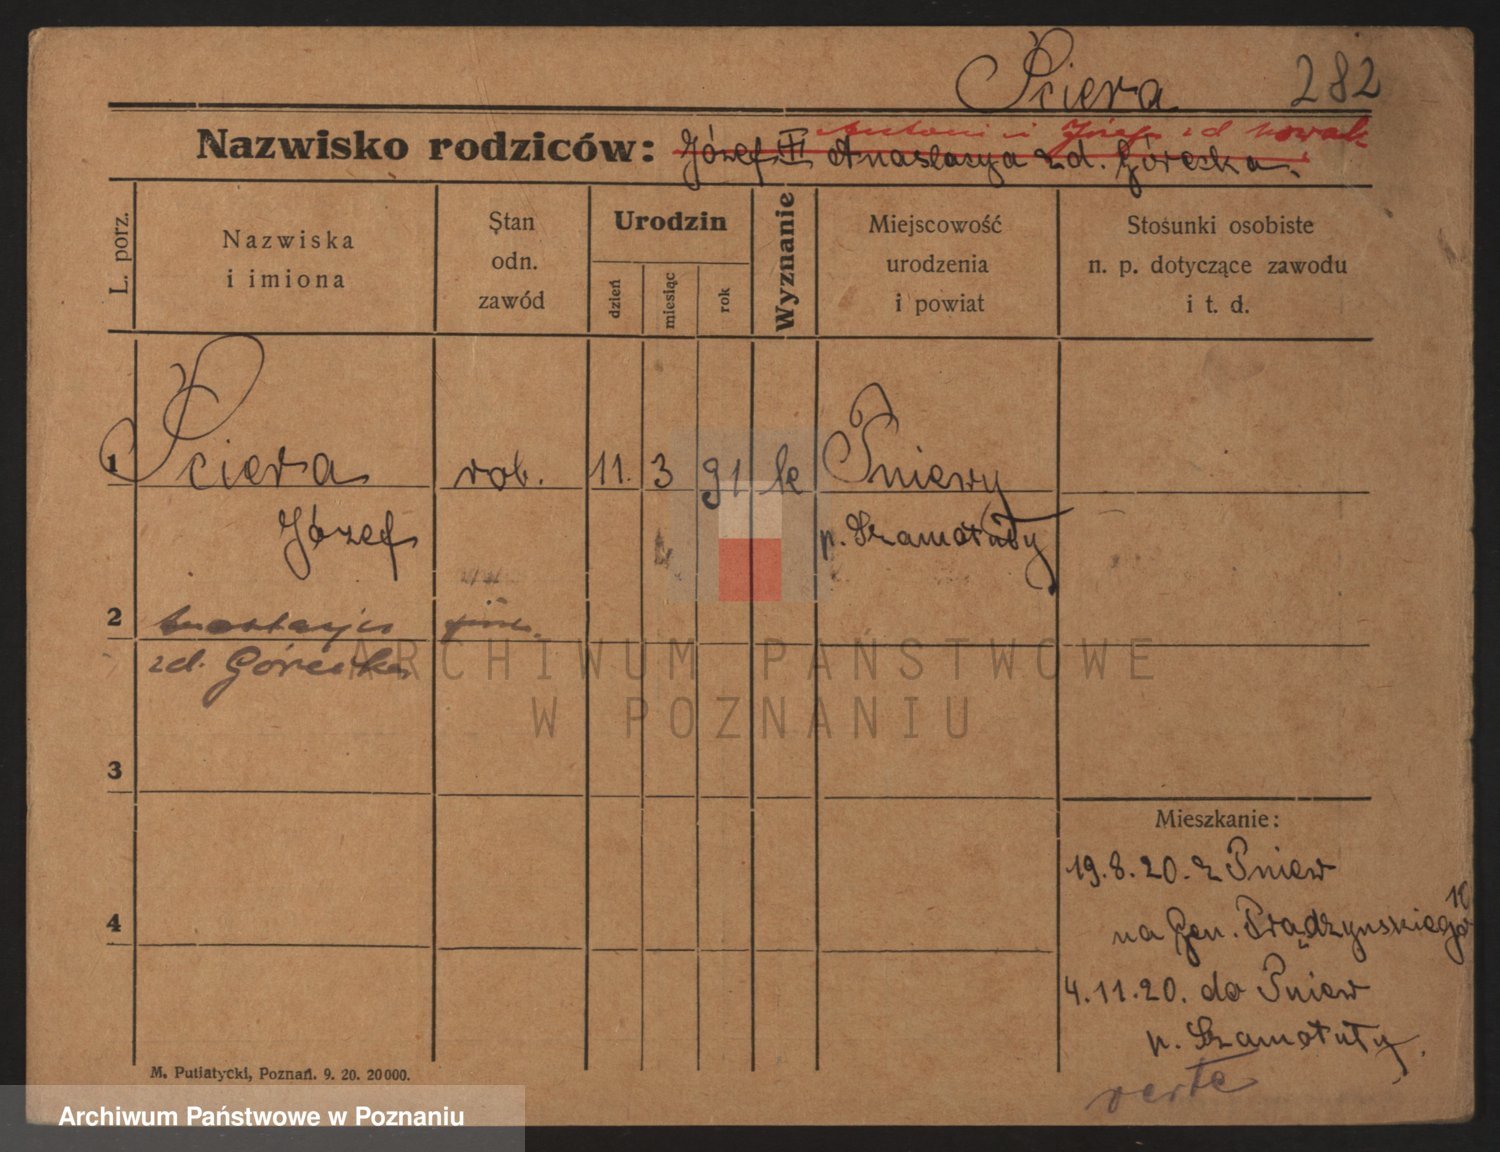 Ściera 282
Antoni i Józefa zd Nowak
Nazwisko rodziców: Józef II Anastazya zd. Górecka.
L. porz.
Nazwiska
i imiona
Stan
odn.
zawód
Urodzin
dzień
miesiąc
rok
Wyznanie
Miejscowość
urodzenia
i powiat
Stosunki osobiste
n. p. dotyczące zawodu
i t. d.
1 Ściera rob. 11. 3 91 k Pniewy
Józef p. Szamotuły
2 Anastazja
zd. Górecka
3
4
Mieszkanie:
19.8.20. z Pniew
na Gen. Prądzyńskiego
4.11.20. do Pniew
p. Szamotuły.
verte
M. Putiatycki, Poznań. 9. 20. 20000.
ARCHIWUM PAŃSTWOWE
W POZNANIU
Archiwum Państwowe w Poznaniu